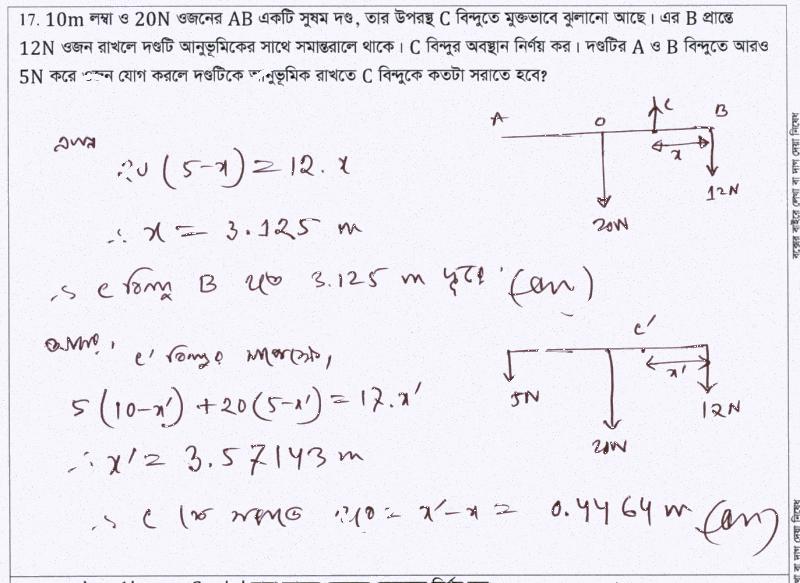 17. 10m লম্বা ও 20N ওজনের AB একটি সুষম দণ্ড, তার উপরস্থ C বিন্দুতে মুক্তভাবে ঝুলানো আছে। এর B প্রান্তে
12N ওজন রাখলে দণ্ডটি আনুভূমিকের সাথে সমান্তরালে থাকে। C বিন্দুর অবস্থান নির্ণয় কর। দণ্ডটির A ও B বিন্দুতে আরও
5N করে ওজন যোগ করলে দণ্ডটিকে আনুভূমিক রাখতে C বিন্দুকে কতটা সরাতে হবে?
A O C B
x
12N
20N
এখন
20 (5-x) = 12. x
∴ x = 3.125 m
∴ C বিন্দু B হতে 3.125 m দূরে (an)
C'
x'
5N
12N
20N
C' বিন্দুর সাপেক্ষে,
5 (10-x') + 20 (5-x') = 17.x'
∴ x' = 3.57143 m
∴ C কে সরাতে হবে = x'-x = 0.4464 m (an)